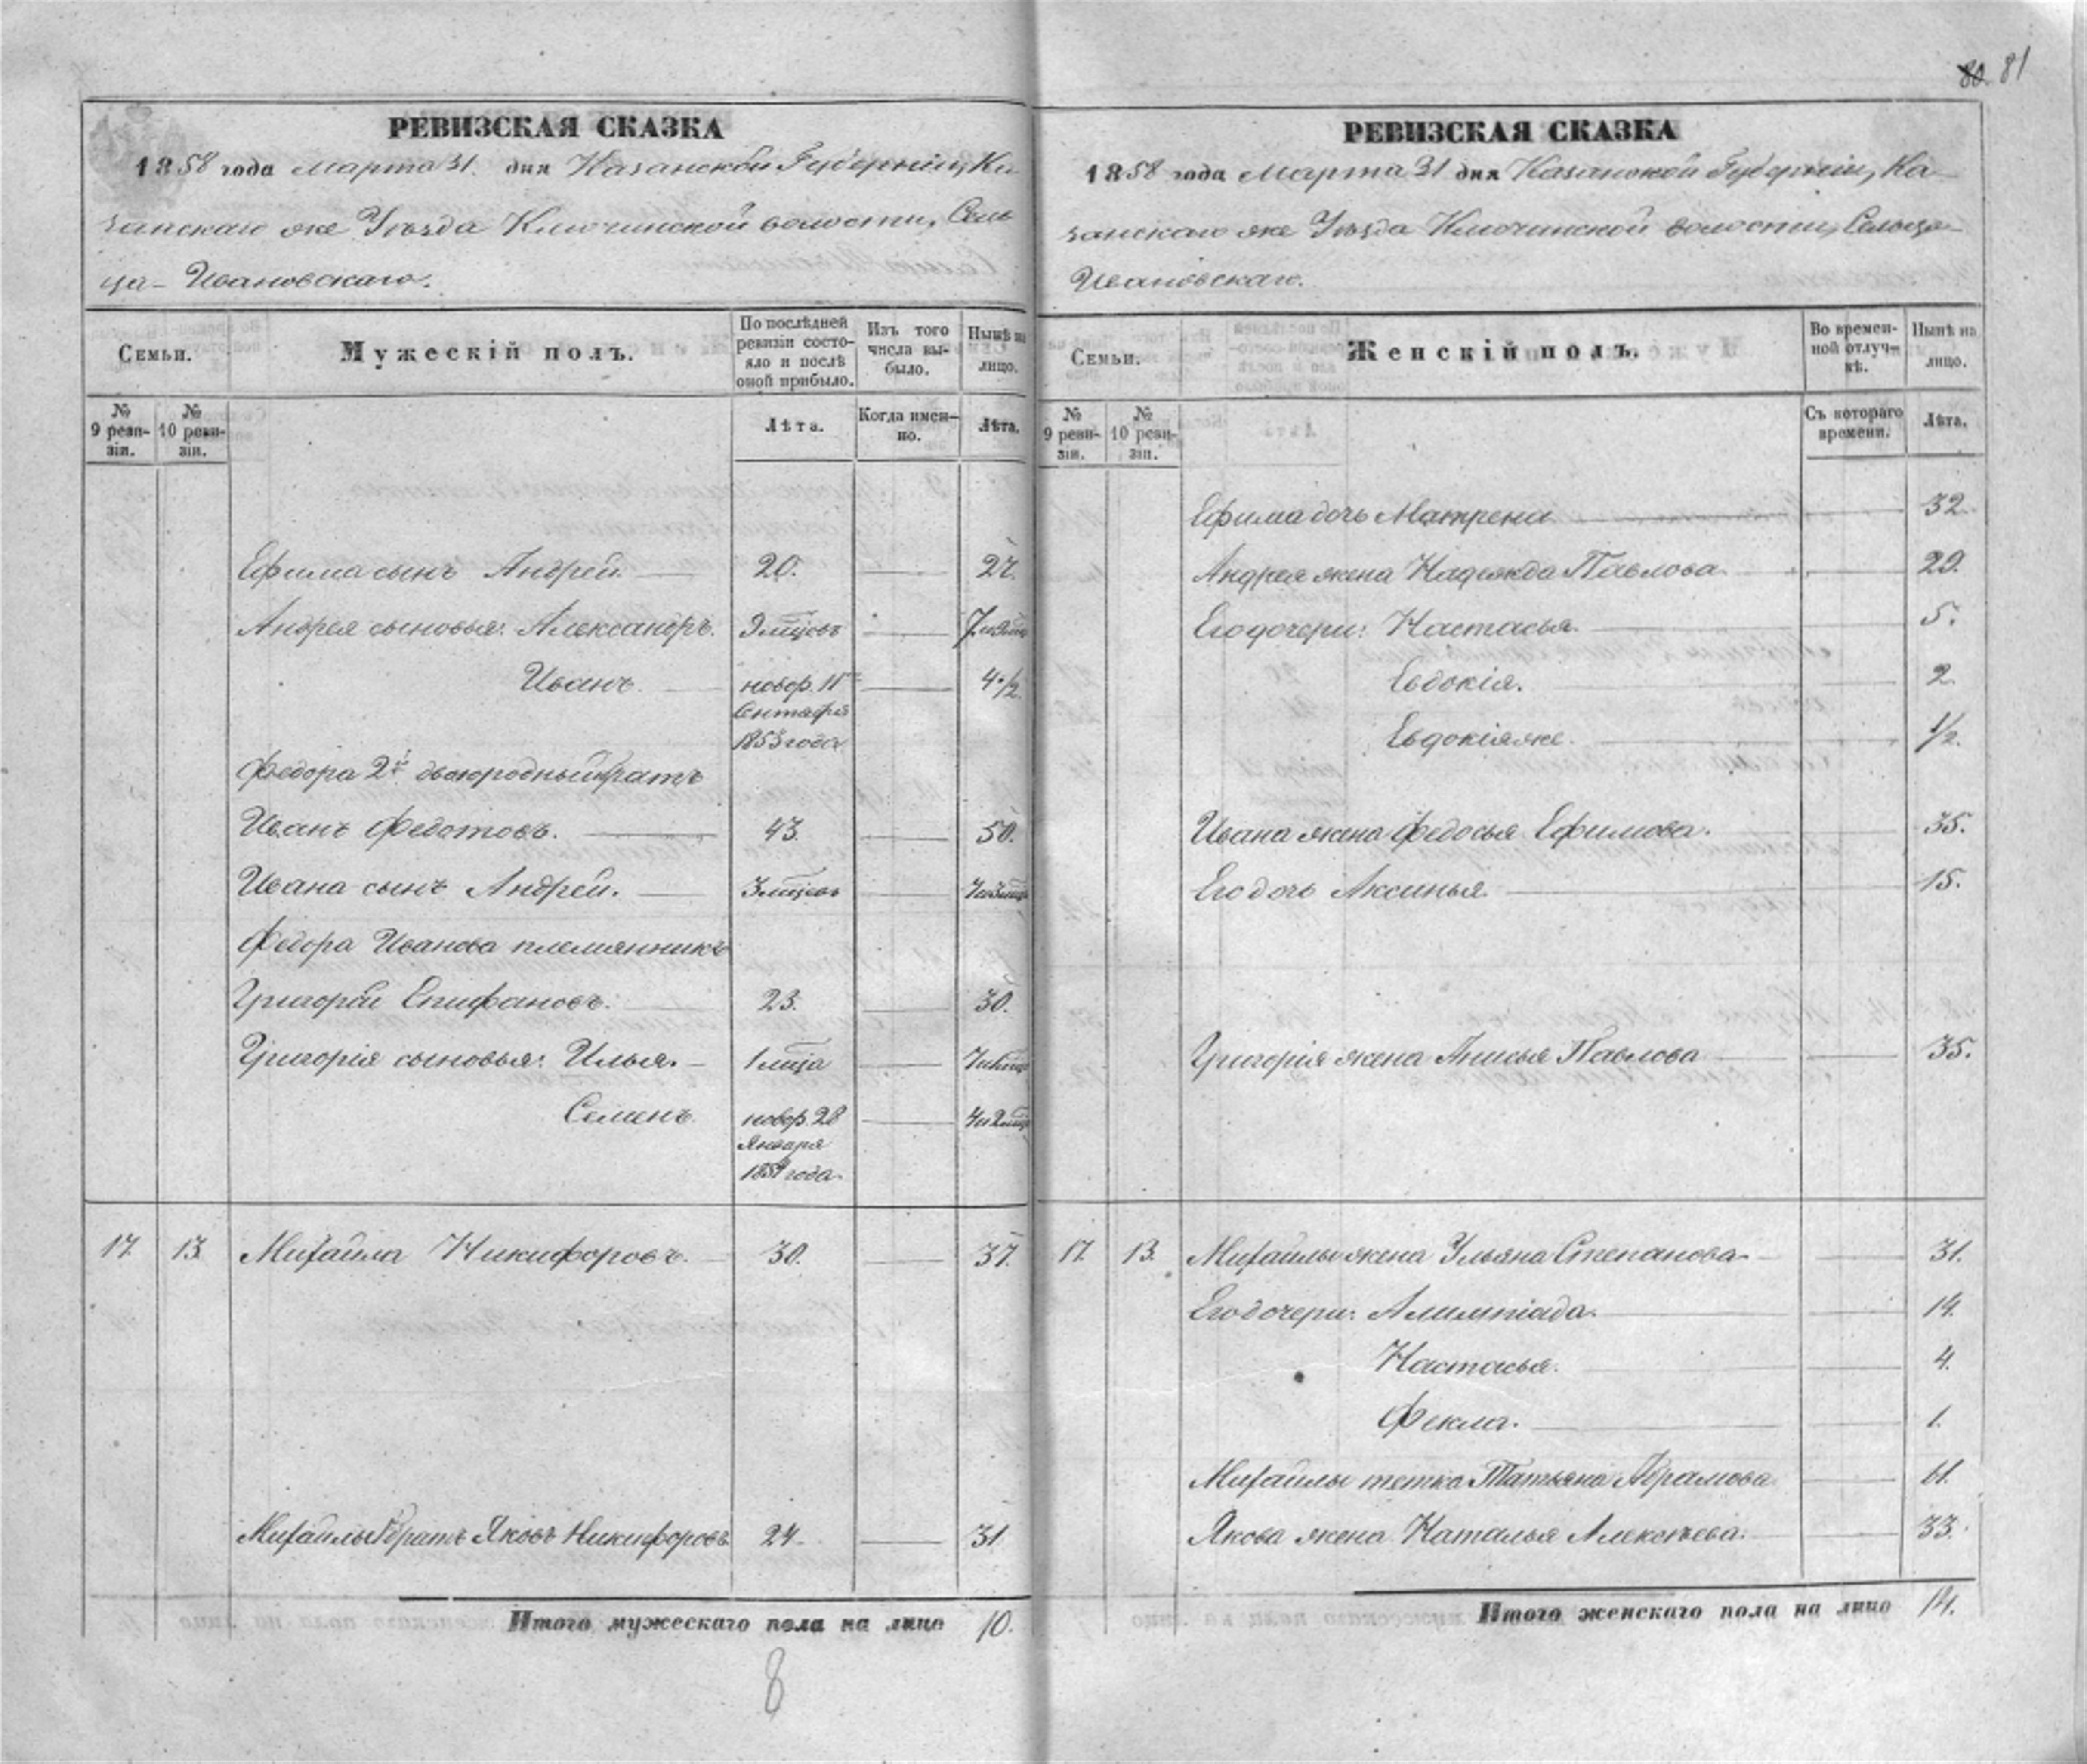 80. 81
РЕВИЗСКАЯ СКАЗКА
1858 года Марта 31. дня Казанской Губерніи, Ка-
занскаго же Уѣзда Ключинской волости, Сель-
ца- Ивановскаго.
Семьи.
Мужескій полъ.
По послѣдней ревизіи состояло и послѣ оной прибыло.
Изъ того числа выбыло.
Нынѣ на лицо.
№ 9 ревизіи.
№ 10 ревизіи.
Лѣта.
Когда именно.
Лѣта.
Ефима сынъ Андрей 20. 27.
Андрея сыновья: Александръ. 9 мцовъ 7 и 9 мц
Иванъ. новор. 11го 4 1/2
Сентября
1853 года
Федора 2й двоюродный братъ
Иванъ Федотовъ. 43. 50.
Ивана сынъ Андрей. 3 мцовъ 7 и 3 мц
Федора Иванова племянникъ
Григорій Епифановъ. 23. 30.
Григорія сыновья: Илья. 1 мца 7 и 1 мц
Семенъ новор. 28 4 и 2 мц
Января
1854 года.
17. 13. Михайла Никифоровъ. 30. 37.
Михайлы братъ Яковъ Никифоровъ 24. 31
Итого мужескаго пола на лицо 10.
8
РЕВИЗСКАЯ СКАЗКА
1858 года Марта 31 дня Казанской Губерніи, Ка-
занскаго же Уѣзда Ключинской волости, Сельца-
Ивановскаго.
Семьи.
Женскій полъ.
Во временной отлучкѣ.
Нынѣ на лицо.
№ 9 ревизіи.
№ 10 ревизіи.
Съ котораго времени.
Лѣта.
Ефима дочь Матрена 32.
Андрея жена Надежда Павлова 29.
Его дочери: Настасья 5.
Евдокія. 2.
Евдокія же. 1/2.
Ивана жена Федосья Ефимова. 35.
Его дочь Аксинья 15.
Григорія жена Анисья Павлова 35.
17. 13. Михайлы жена Ульяна Степанова 31.
Его дочери: Алимпіада. 14.
Настасья. 4.
Фекла. 1.
Михайлы тетка Татьяна Абрамова 61.
Якова жена Наталья Алексѣева. 33.
Итого женскаго пола на лицо 14.